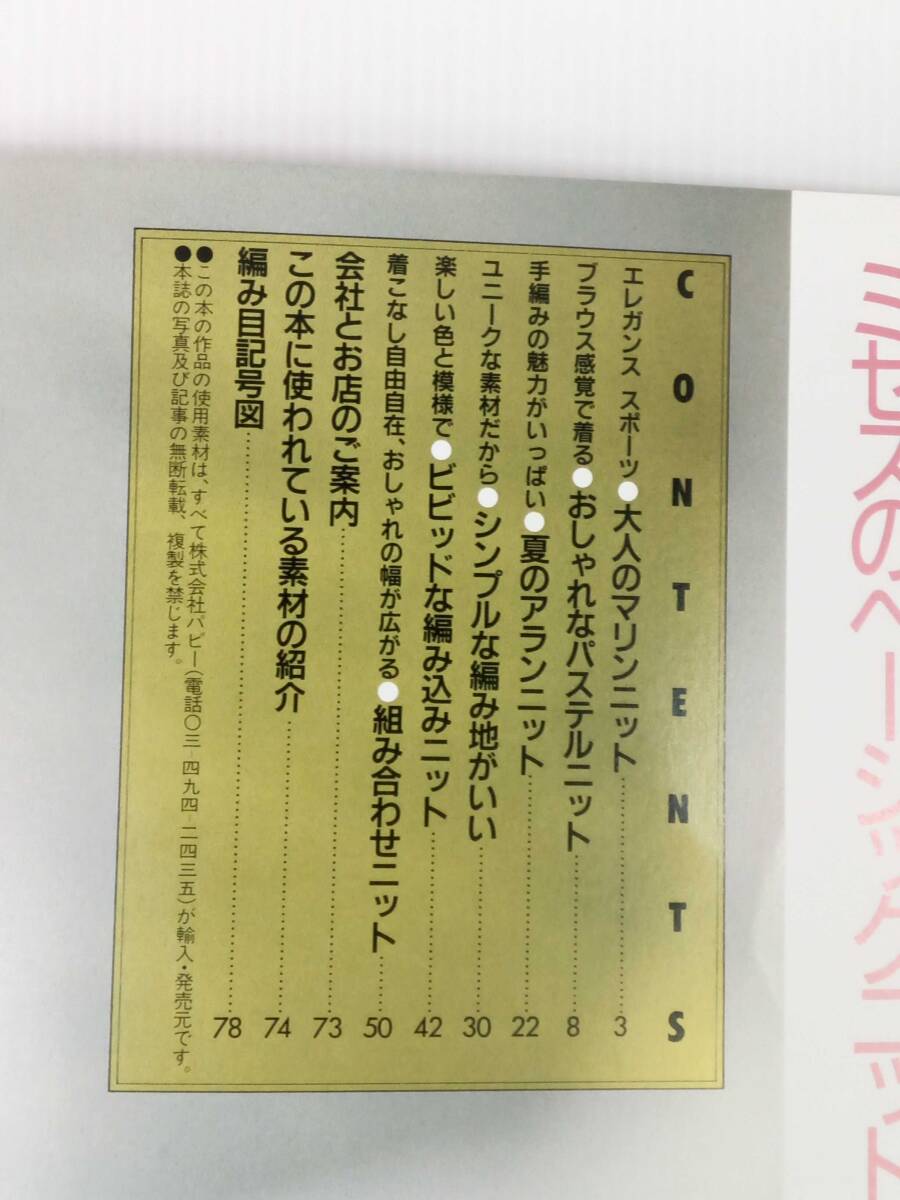 ミセスのベーシックニット
CONTENTS
エレガンス スポーツ●大人のマリンニット……3
ブラウス感覚で着る●おしゃれなパステルニット……8
手編みの魅力がいっぱい●夏のアランニット……22
ユニークな素材だから●シンプルな編み地がいい……30
楽しい色と模様で●ビビッドな編み込みニット……42
着こなし自由自在、おしゃれの幅が広がる●組み合わせニット……50
会社とお店のご案内……73
この本に使われている素材の紹介……74
編み目記号図……78
●この本の作品の使用素材は、すべて株式会社パピー(電話〇三-四九四-二四三五)が輸入・発売元です。
●本誌の写真及び記事の無断転載、複製を禁じます。